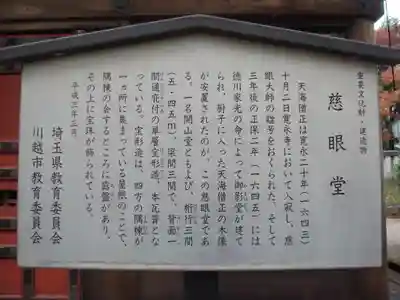 重要文化財・建造物
慈眼堂
天海僧正は寛永二十年(一六四三)
十月二日寛永寺において入寂し、慈
眼大師の諡号をおくられた。そして
三年後の正保二年(一六四五)には
徳川家光の命によって御影堂が建て
られ、厨子に入った天海僧正の木像
が安置されたのが、この慈眼堂であ
る。一名開山堂ともよび、桁行三間
(五・四五m)、梁間三間で、背面一
間通庇付の単層宝形造、本瓦葺とな
っている。宝形造は、四方の隅棟が
一ヵ所に集まっている屋根のことで、
隅棟の会するところに露盤があり、
その上に宝珠が飾られている。
平成三年二月
埼玉県教育委員会
川越市教育委員会